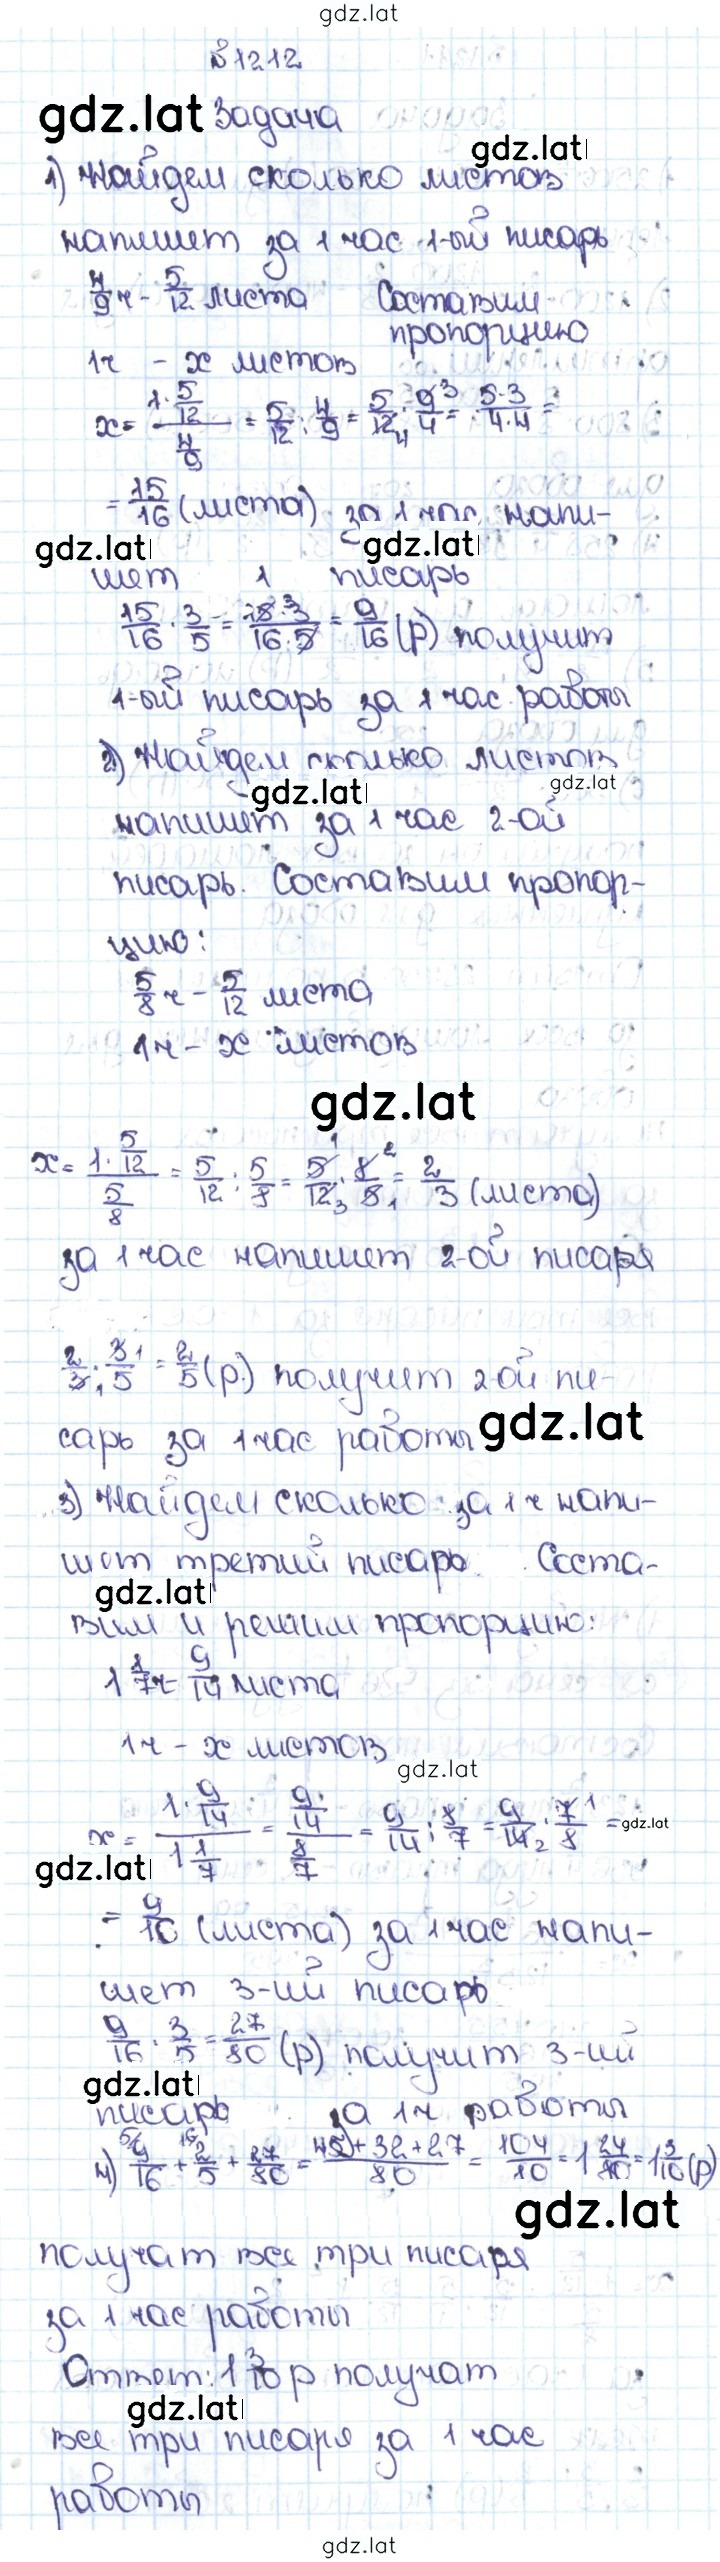 gdz.lat
№1212
gdz.lat Задача
gdz.lat
1) Найдем сколько листов
напишет за 1 час 1-ый писарь
4/9 ч - 5/12 листа Составим
пропорцию
1ч - x листов
x = (1·5/12)/(4/9) = 5/12 : 4/9 = 5/12 · 9/4 = 5·3/4·4 =
= 15/16 (листа) за 1 час напи-
gdz.lat gdz.lat
шет 1 писарь
15/16 · 3/5 = 15·3/16·5 = 9/16 (р) получит
1-ый писарь за 1 час работы
2) Найдем сколько листов
gdz.lat gdz.lat
напишет за 1 час 2-ой
писарь. Составим пропор-
цию:
5/8 ч - 5/12 листа
1ч - x листов
gdz.lat
x = (1·5/12)/(5/8) = 5/12 : 5/8 = 5/12 · 8/5 = 2/3 (листа)
за 1 час напишет 2-ой писаря
2/3 · 3/5 = 2/5 (р.) получит 2-ой пи-
сарь за 1 час работы gdz.lat
3) Найдем сколько за 1 ч напи-
шет третий писарь. Соста-
gdz.lat
вим и решим пропорцию:
1 1/7 ч - 9/14 листа
1ч - x листов
gdz.lat
x = (1·9/14)/(1 1/7) = (9/14)/(8/7) = 9/14 : 8/7 = 9/14 · 7/8 = gdz.lat
gdz.lat
= 9/16 (листа) за 1 час напи-
шет 3-ий писарь
9/16 · 3/5 = 27/80 (р) получит 3-ий
gdz.lat
писарь за 1ч работы
4) 9/16 + 2/5 + 27/80 = 45+32+27/80 = 104/80 = 1 24/80 = 1 3/10 (р)
gdz.lat
получат все три писаря
за 1 час работы
Ответ: 1 3/10 р получат
gdz.lat
все три писаря за 1 час
работы
gdz.lat